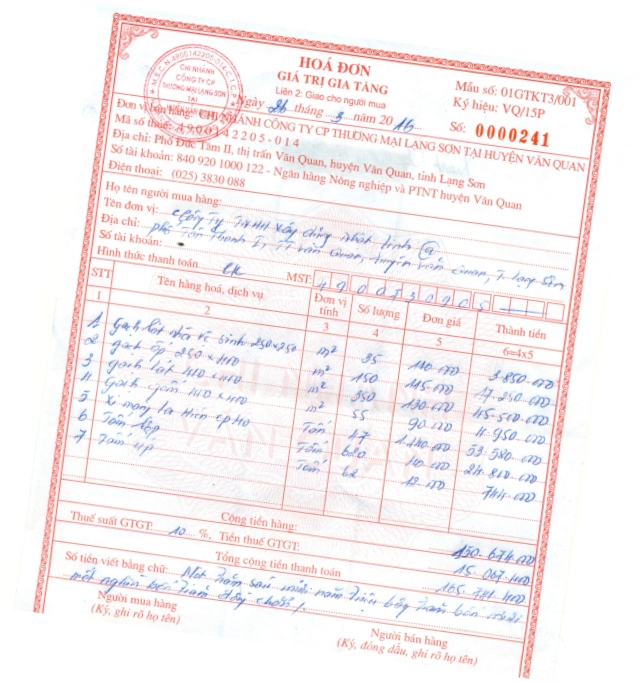 CHI NHÁNH
CÔNG TY CP
THƯƠNG MẠI LẠNG SƠN
TẠI
HOÁ ĐƠN
GIÁ TRỊ GIA TĂNG
Liên 2: Giao cho người mua
Ngày 26 tháng 3 năm 2016
Mẫu số: 01GTKT3/001
Ký hiệu: VQ/15P
Số: 0000241
Đơn vị bán hàng: CHI NHÁNH CÔNG TY CP THƯƠNG MẠI LẠNG SƠN TẠI HUYỆN VĂN QUAN
Mã số thuế: 4900142205-014
Địa chỉ: Phố Đức Tâm II, thị trấn Văn Quan, huyện Văn Quan, tỉnh Lạng Sơn
Số tài khoản: 840 920 1000 122 - Ngân hàng Nông nghiệp và PTNT huyện Văn Quan
Điện thoại: (025) 3830 088
Họ tên người mua hàng:
Tên đơn vị: Công ty TNHH xây dựng
Địa chỉ: phố Tân Thanh I, TT Văn Quan, huyện Văn Quan, T. Lạng Sơn
Số tài khoản:
Hình thức thanh toán CK MST:
STT Tên hàng hoá, dịch vụ Đơn vị tính Số lượng Đơn giá Thành tiền
1 2 3 4 5 6=4x5
1 Gạch lát nhà vệ sinh 250x250 m² 35 110.000 3.850.000
2 gạch ốp 250x400 m² 150 115.000 17.250.000
3 gạch lát 400x400 m² 350 130.000 45.500.000
4 Gạch gốm 400x400 m² 55 90.000 4.950.000
5 Xi măng La Hiên CP40 Tấn 47 1.140.000 53.580.000
6 Tấm lợp Tấm 620 40.000 24.800.000
7 Tấm úp Tấm 62 12.000 744.000
Cộng tiền hàng: 150.674.000
Thuế suất GTGT: 10 %, Tiền thuế GTGT: 15.067.400
Tổng cộng tiền thanh toán 165.741.400
Số tiền viết bằng chữ: Một trăm sáu mươi năm triệu bảy trăm bốn mươi
một nghìn bốn trăm đồng chẵn /
Người mua hàng
(Ký, ghi rõ họ tên)
Người bán hàng
(Ký, đóng dấu, ghi rõ họ tên)